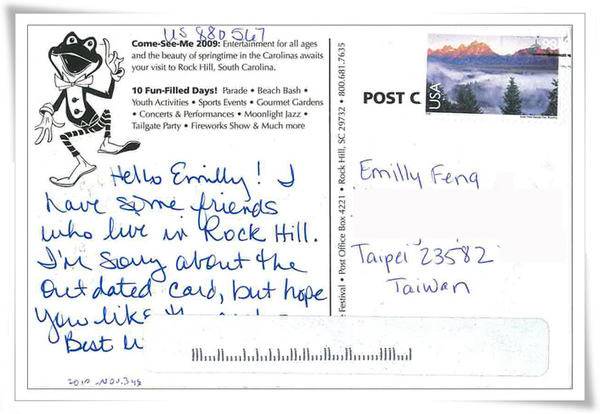 US 880567
Come-See-Me 2009: Entertainment for all ages
and the beauty of springtime in the Carolinas awaits
your visit to Rock Hill, South Carolina.
10 Fun-Filled Days! Parade • Beach Bash •
Youth Activities • Sports Events • Gourmet Gardens
• Concerts & Performances • Moonlight Jazz •
Tailgate Party • Fireworks Show & Much more
Hello Emilly! I
have some friends
who live in Rock Hill.
I'm sorry about the
outdated card, but hope
you like
Best
2010
e Festival • Post Office Box 4221 • Rock Hill, SC 29732 • 800.681.7635
POST C
USA
Emilly Feng
Taipei 23582
Taiwan